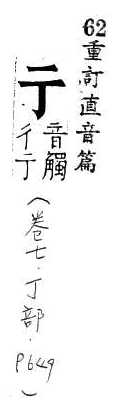 62重訂直音篇
亍
音觸
彳亍
(卷七.丁部.P649)